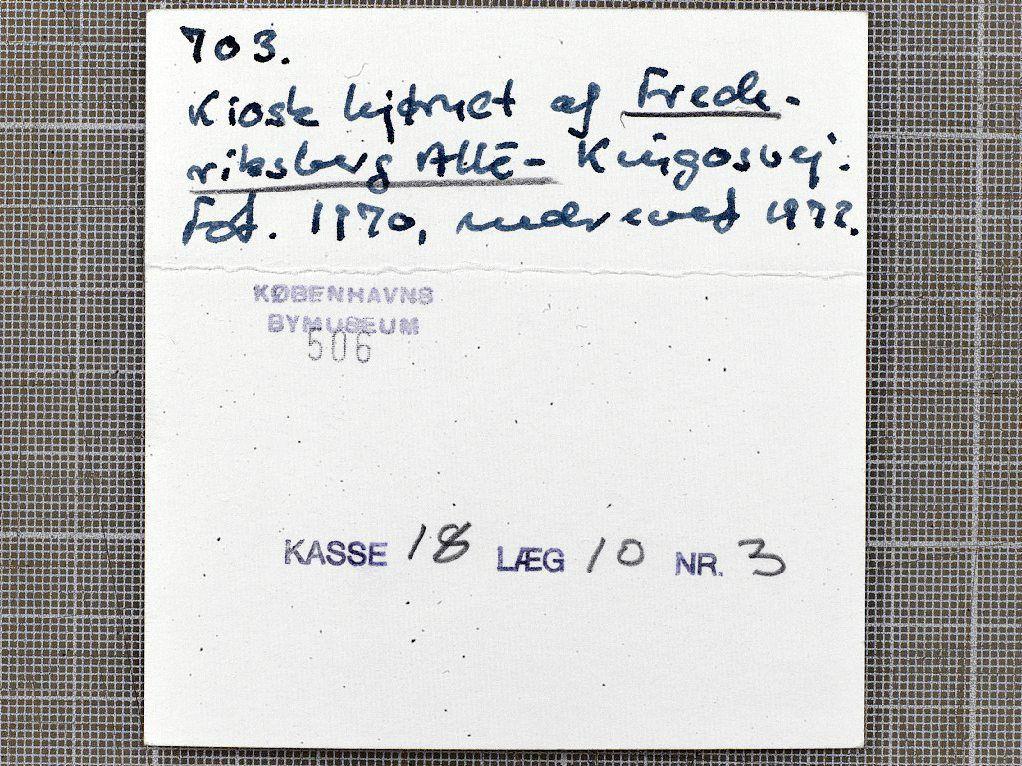 703.
Kiosk hjørnet af Frede-
riksberg Allé - Kingosvej.
Fot. 1970, nedrevet 1972.
KØBENHAVNS
BYMUSEUM
506
KASSE 18 LÆG 10 NR. 3